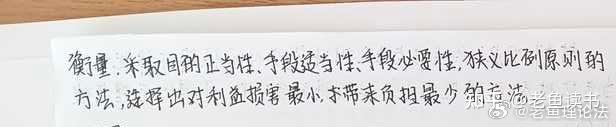 衡量.采取目的正当性、手段适当性、手段必要性,狭义比例原则的
方法,选择出对利益损害最小、带来负担最少的方法
知乎 @老鱼读书
@老鱼理论法